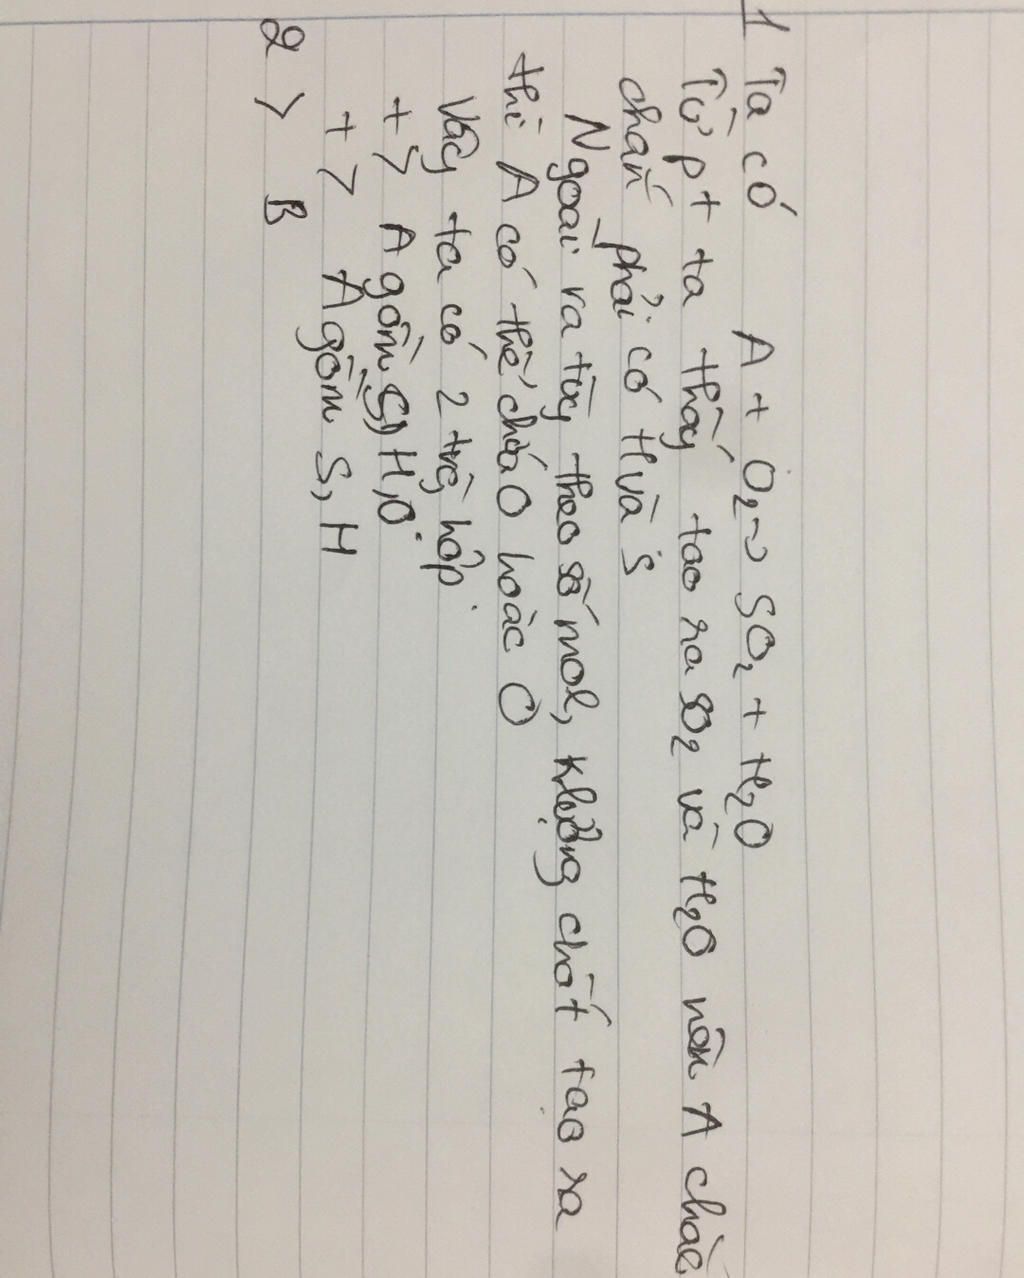 1 Ta có A + O2 → SO2 + H2O
Từ pt ta thấy tạo ra SO2 và H2O nên A chắc
chắn phải có H và S
Ngoài ra tùy theo số mol, khlượng chất tạo ra
thì A có thể chứa O hoặc O
Vậy ta có 2 trg hợp
+> A gồm S, H, O
+> A gồm S, H
2 > B